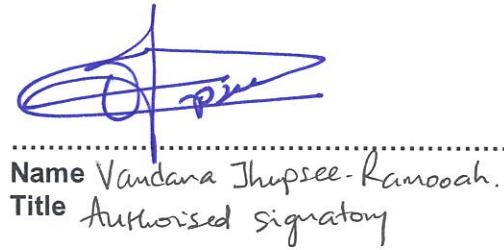 Name Vandana Jhupsee-Ramooah.
Title Authorised signatory